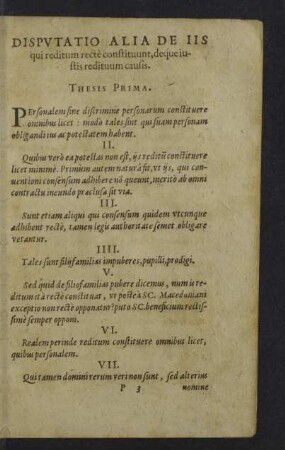 DISPVTATIO ALIA DE IIS
qui reditum rectè constituunt, deque iu-
stis redituum causis.
THESIS PRIMA.
PErsonalem sine discrimine personarum constituere
omnibus licet: modo tales sint qui suam personam
obligandi ius ac potestatem habent.
II.
Quibus verò ea potestas non est, ijs reditū constituere
licet minimè. Primùm autem naturâ fit, vt ijs, qui con-
uentioni consensum adhibere nō queunt, meritò ab omni
contractu ineundo praeclusa sit via.
III.
Sunt etiam aliqui qui consensum quidem vtcunque
adhibent rectè, tamen legis authoritate semet obligare
vetantur.
IIII.
Tales sunt filijfamilias impuberes, pupilli, prodigi.
V.
Sed quid de filiofamilias pubere dicemus, num is re
ditum ità rectè constituat, vt posteà SC. Macedoniani
exceptio non rectè opponatur? puto SC. beneficium rectis-
simè semper opponi.
VI.
Realem perinde reditum constituere omnibus licet,
quibus personalem.
VII.
Qui tamen domini rerum veri non sunt, sed alterius
P 3 nomine